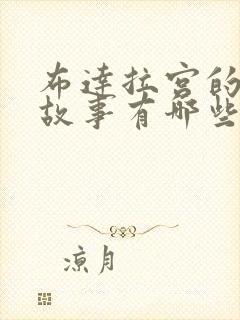 布达拉宫的
故事有哪些
凉月